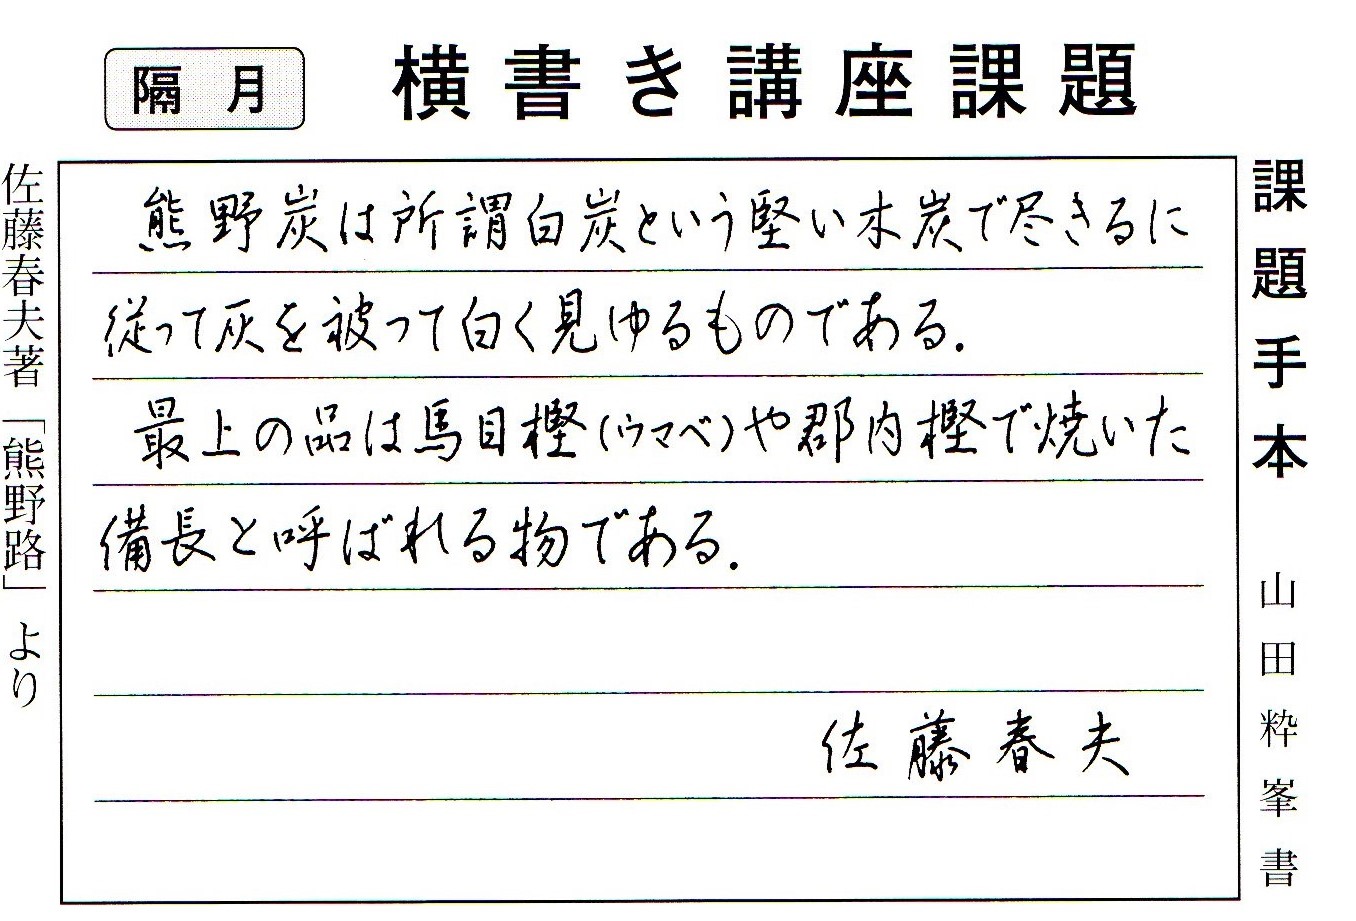 隔月
横書き講座課題
課題手本 山田粋峯書
熊野炭は所謂白炭という堅い木炭で尽きるに
従って灰を被って白く見ゆるものである．
最上の品は馬目樫（ウマベ）や郡内樫で焼いた
備長と呼ばれる物である．
佐藤春夫
佐藤春夫著「熊野路」より